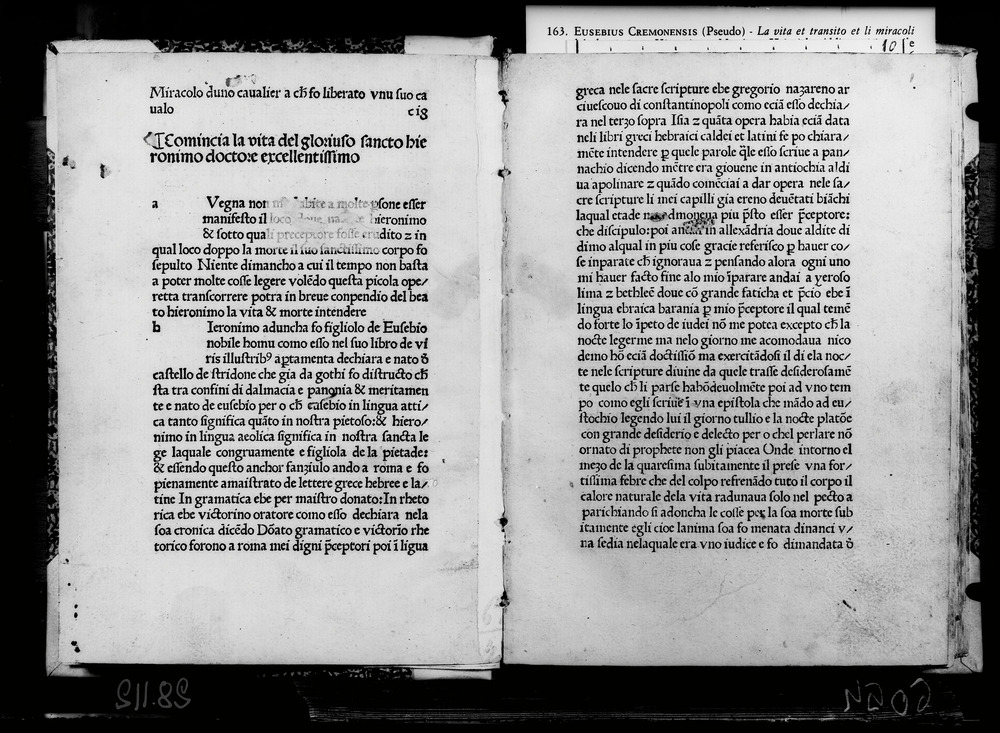 163. EUSEBIUS CREMONENSIS (Pseudo) - La vita et transito et li miracoli
Miracolo duno caualier a ch̄ fo liberato vnu suo ca
ualo c ig
¶Comincia la vita del glorioso sancto hie
ronimo doctore excellentissimo
a Vegna non abite a molte ꝑsone esser
manifesto il loco doue hieronimo
& sotto quali preceptore fosse erudito ⁊ in
qual loco doppo la morte il suo sanctissimo corpo fo
sepulto Niente dimancho a cui il tempo non basta
a poter molte cosse legere volēdo questa picola ope/
retta transcorrere potra in breue conpendio del bea
to hieronimo la vita & morte intendere
b Ieronimo aduncha fo figliolo de Eusebio
nobile homu como esso nel suo libro de vi
ris illustribꝰ aptamenta dechiara e nato d̄
castello de stridone che gia da gothi fo distructo ch̄
sta tra confini di dalmacia e panonia & meritamen
te e nato de eusebio per o ch̄ eusebio in lingua atti/
ca tanto significa quāto in nostra pietoso: & hiero/
nimo in lingua aeolica significa in nostra sancta le
ge laquale congruamente e figliola de la pietade:
& essendo questo anchor fanziulo ando a roma e fo
pienamente amaistrato de lettere grece hebree e la/
tine In gramatica ebe per maistro donato: In rheto
rica ebe victorino oratore como esso dechiara nela
soa cronica dicēdo Dōato gramatico e victorīo rhe
torico forono a roma mei digni p̄ceptori poi ī ligua
greca nele sacre scripture ebe gregorio nazareno ar
ciuescouo di constantinopoli como eciā esso dechia/
ra nel terzo sopra Isia ⁊ quāta opera habia eciā data
neli libri greci hebraici caldei et latini se po chiara/
mēte intendere ꝑ quele parole q̄le esso scriue a pan/
nachio dicendo mētre era giouene in antiochia aldi
ua apolinare ⁊ quādo comēciai a dar opera nele sa/
cre scripture li mei capilli gia ereno deuētati biāchi
laqual etade piu p̄sto esser p̄ceptore:
che discipulo: poi in allexādria doue aldite di
dimo alqual in piu cose gracie referisco ꝑ hauer co/
se inparate ch̄ ignoraua ⁊ pensando alora ogni uno
mi hauer facto fine alo mio īparare andai a yeroso
lima ⁊ bethleē doue cō grande faticha et p̄cio ebe ī
lingua ebraica barania ꝑ mio p̄ceptore il qual temē
do forte lo īpeto de iudei nō me potea excepto ch̄ la
nocte legerme ma nelo giorno me acomodaua nico
demo hō eciā doctissīo ma exercitādosi il di ela noc/
te nele scripture diuine da quele trasse desiderosamē
te quelo ch̄ li parse habōdeuolmēte poi ad vno tem
po como egli scriue ī vna epistola che mādo ad eu/
stochio legendo lui il giorno tullio e la nocte platōe
con grande desiderio e delecto per o chel perlare nō
ornato di prophete non gli piacea Onde intorno el
mezo de la quaresima subitamente il prese vna for/
tissima febre che del colpo refrenādo tuto il corpo il
calore naturale dela vita radunaua solo nel pecto a
parichiando si adoncha le cosse per la soa morte sub
itamente egli cioe lanima soa fo menata dinanci v/
na sedia nelaquale era vno iudice e fo dimandata d̄